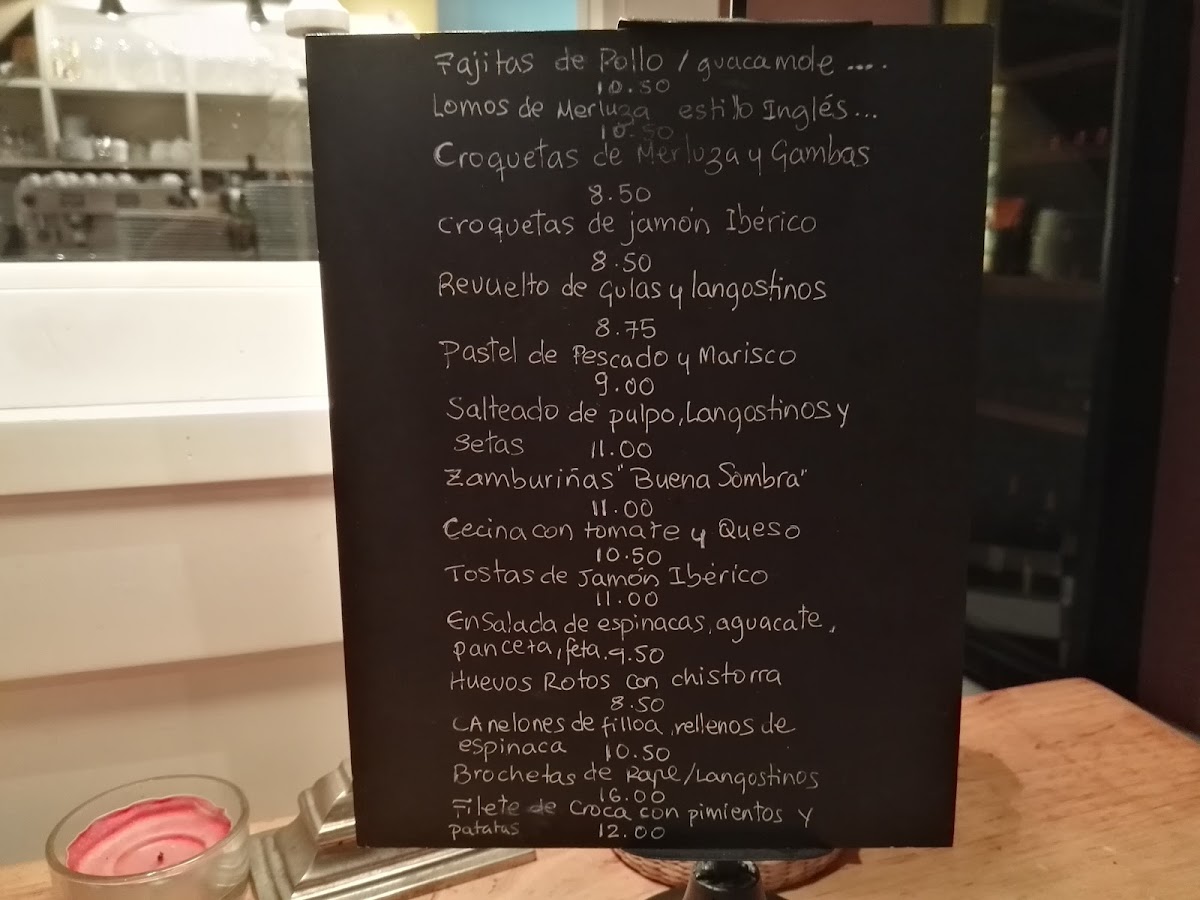 Fajitas de Pollo / guacamole ....
10.50
Lomos de Merluza estilo Inglés...
10.50
Croquetas de Merluza y Gambas
8.50
Croquetas de jamón Ibérico
8.50
Revuelto de Gulas y langostinos
8.75
Pastel de Pescado y Marisco
9.00
Salteado de pulpo, Langostinos y
setas 11.00
Zamburiñas "Buena Sombra"
11.00
Cecina con tomate y Queso
10.50
Tostas de Jamón Ibérico
11.00
Ensalada de espinacas, aguacate,
panceta, feta. 9.50
Huevos Rotos con chistorra
8.50
CAnelones de filloa, rellenos de
espinaca 10.50
Brochetas de Rape/Langostinos
16.00
Filete de Croca con pimientos y
patatas 12.00